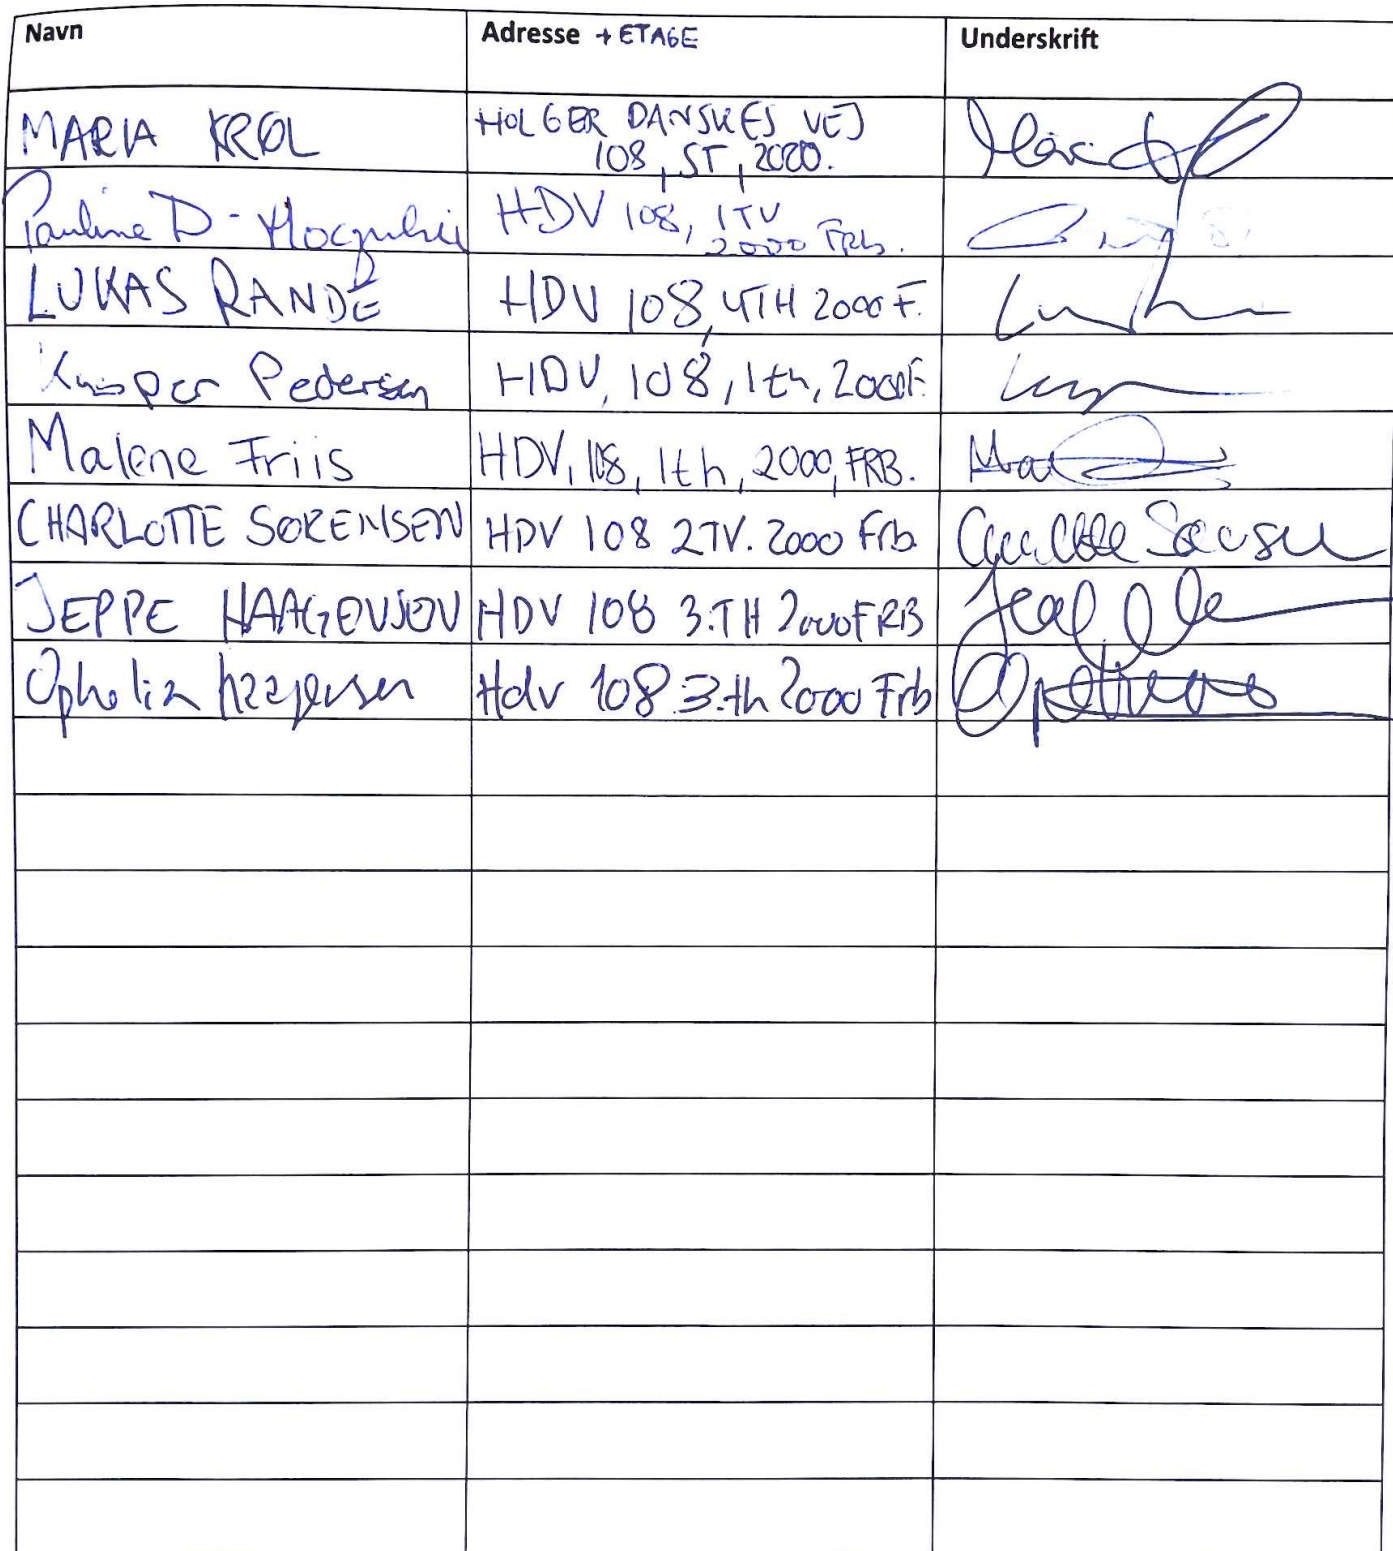 Navn Adresse + ETAGE Underskrift
MARIA KROL HOLGER DANSKES VEJ
108, ST, 2000.
Pauline D- HDV 108, 1TV
2000 FRb.
LUKAS RANDE HDV 108, 4TH 2000 F.
Kasper Pedersen HDV, 108, 1th, 2000F.
Malene Friis HDV, 108, 1th, 2000, FRB.
CHARLOTTE SØRENSEN HDV 108 2TV. 2000 Frb.
JEPPE HAAGENSEN HDV 108 3.TH 2000 FRB
Ophelia Hdv 108 3.th 2000 Frb